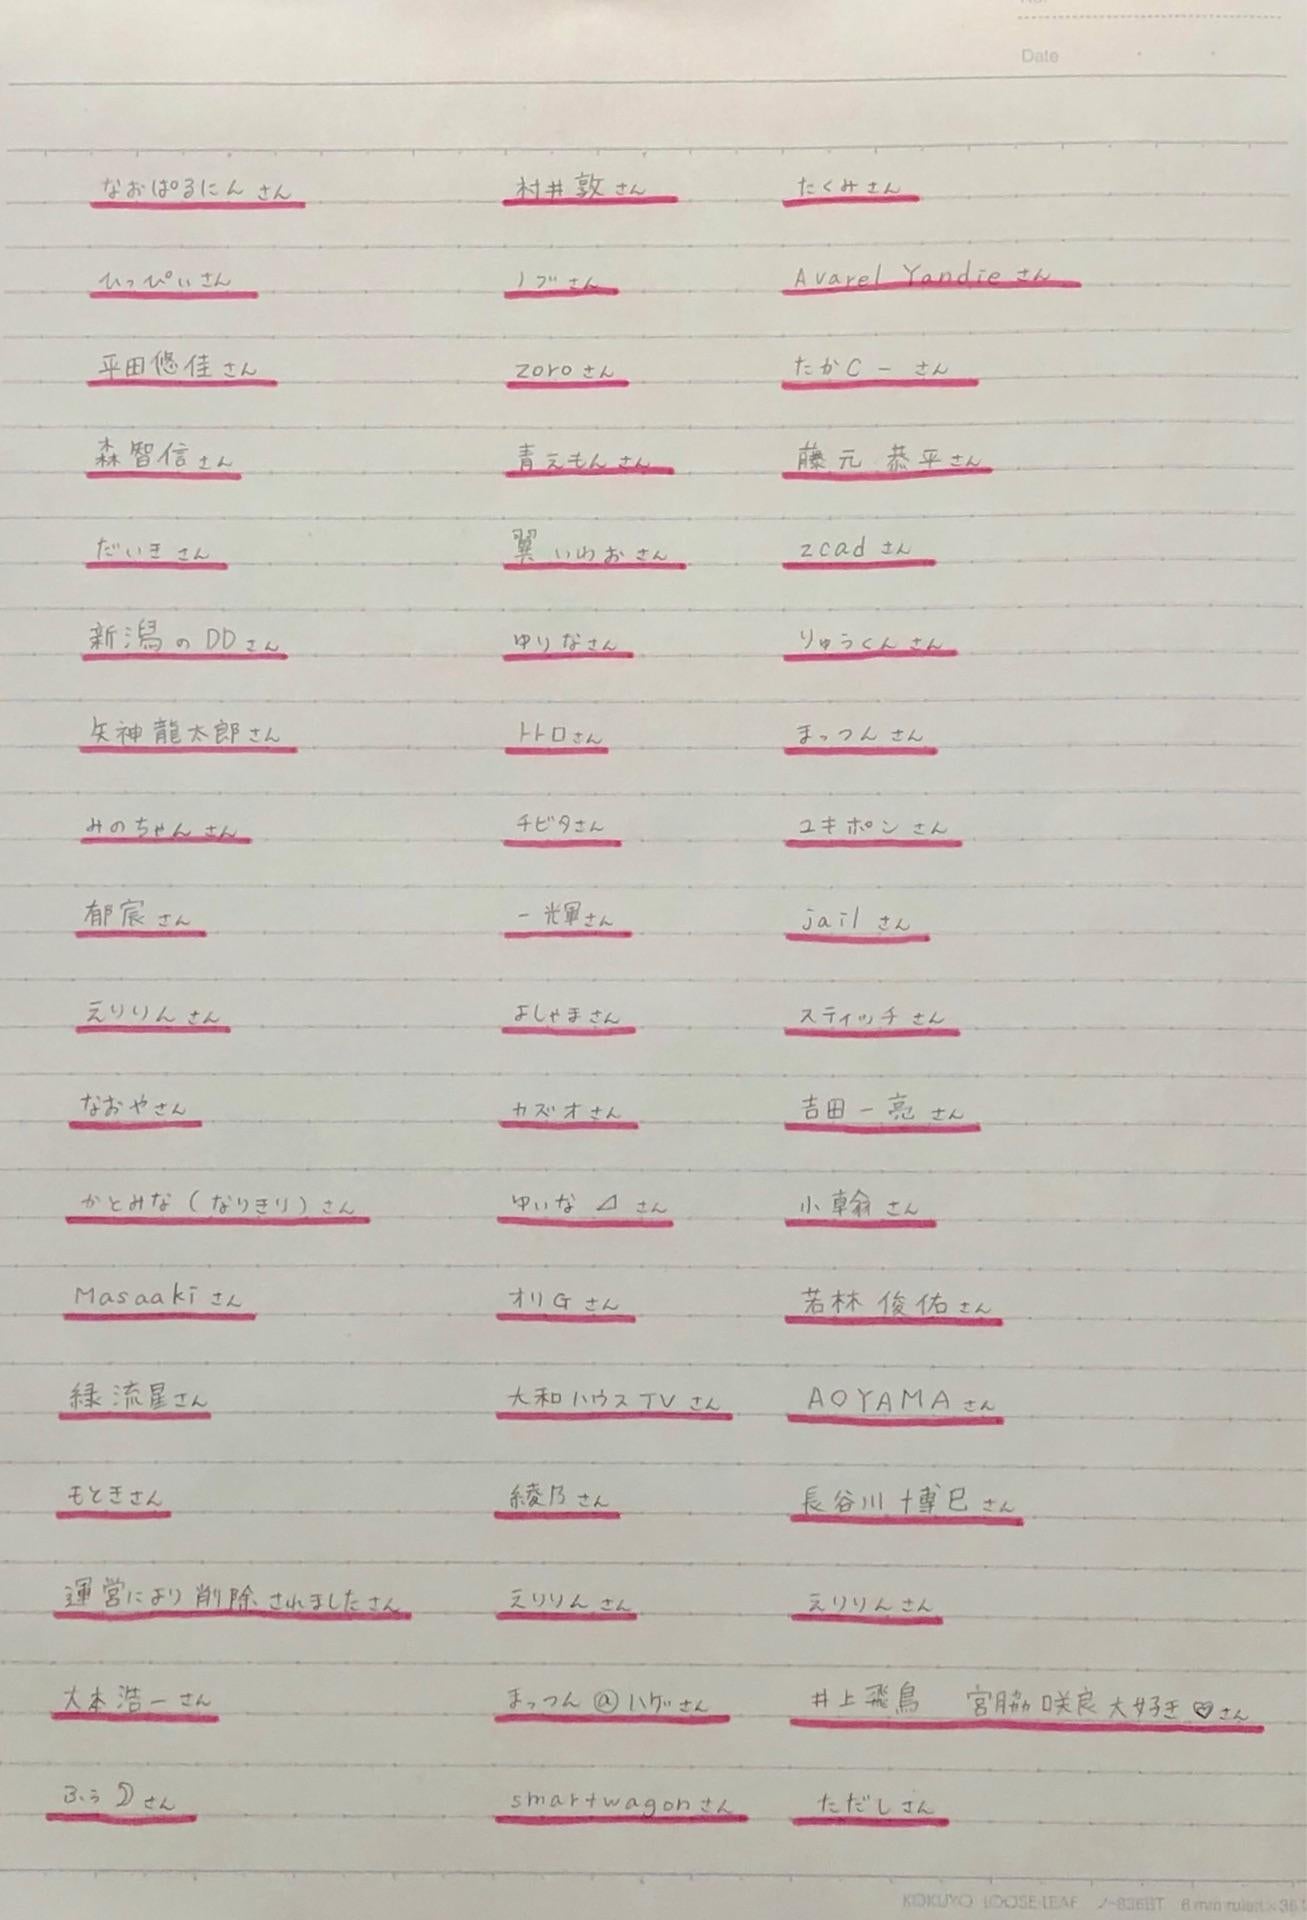 Date
なおぱるにんさん 村井敦さん たくみさん
ひっぴぃさん ノブさん Avarel Yandieさん
平田悠佳さん zoroさん たかCーさん
森智信さん 青えもんさん 藤元 恭平さん
だいきさん 翼いわおさん zcadさん
新潟のDDさん ゆりなさん りゅうくんさん
矢神龍太郎さん トトロさん まっつんさん
みのちゃんさん チビタさん ユキポンさん
郁宸さん 一輝さん jailさん
えりりんさん よしゃまさん スティッチさん
なおやさん カズオさん 吉田一亮さん
かとみな(なりきり)さん ゆいな⊿さん 小翰さん
Masaakiさん オリGさん 若林 俊佑さん
緑流星さん 大和ハウスTVさん AOYAMAさん
もときさん 綾乃さん 長谷川博巳さん
運営により削除されましたさん えりりんさん えりりんさん
大本浩一さん まっつん@ハゲさん 井上飛鳥 宮脇咲良大好き♡さん
ふぅ さん smartwagonさん ただしさん
KOKUYO LOOSE-LEAF ノ-836BT 6 mm ruled×36